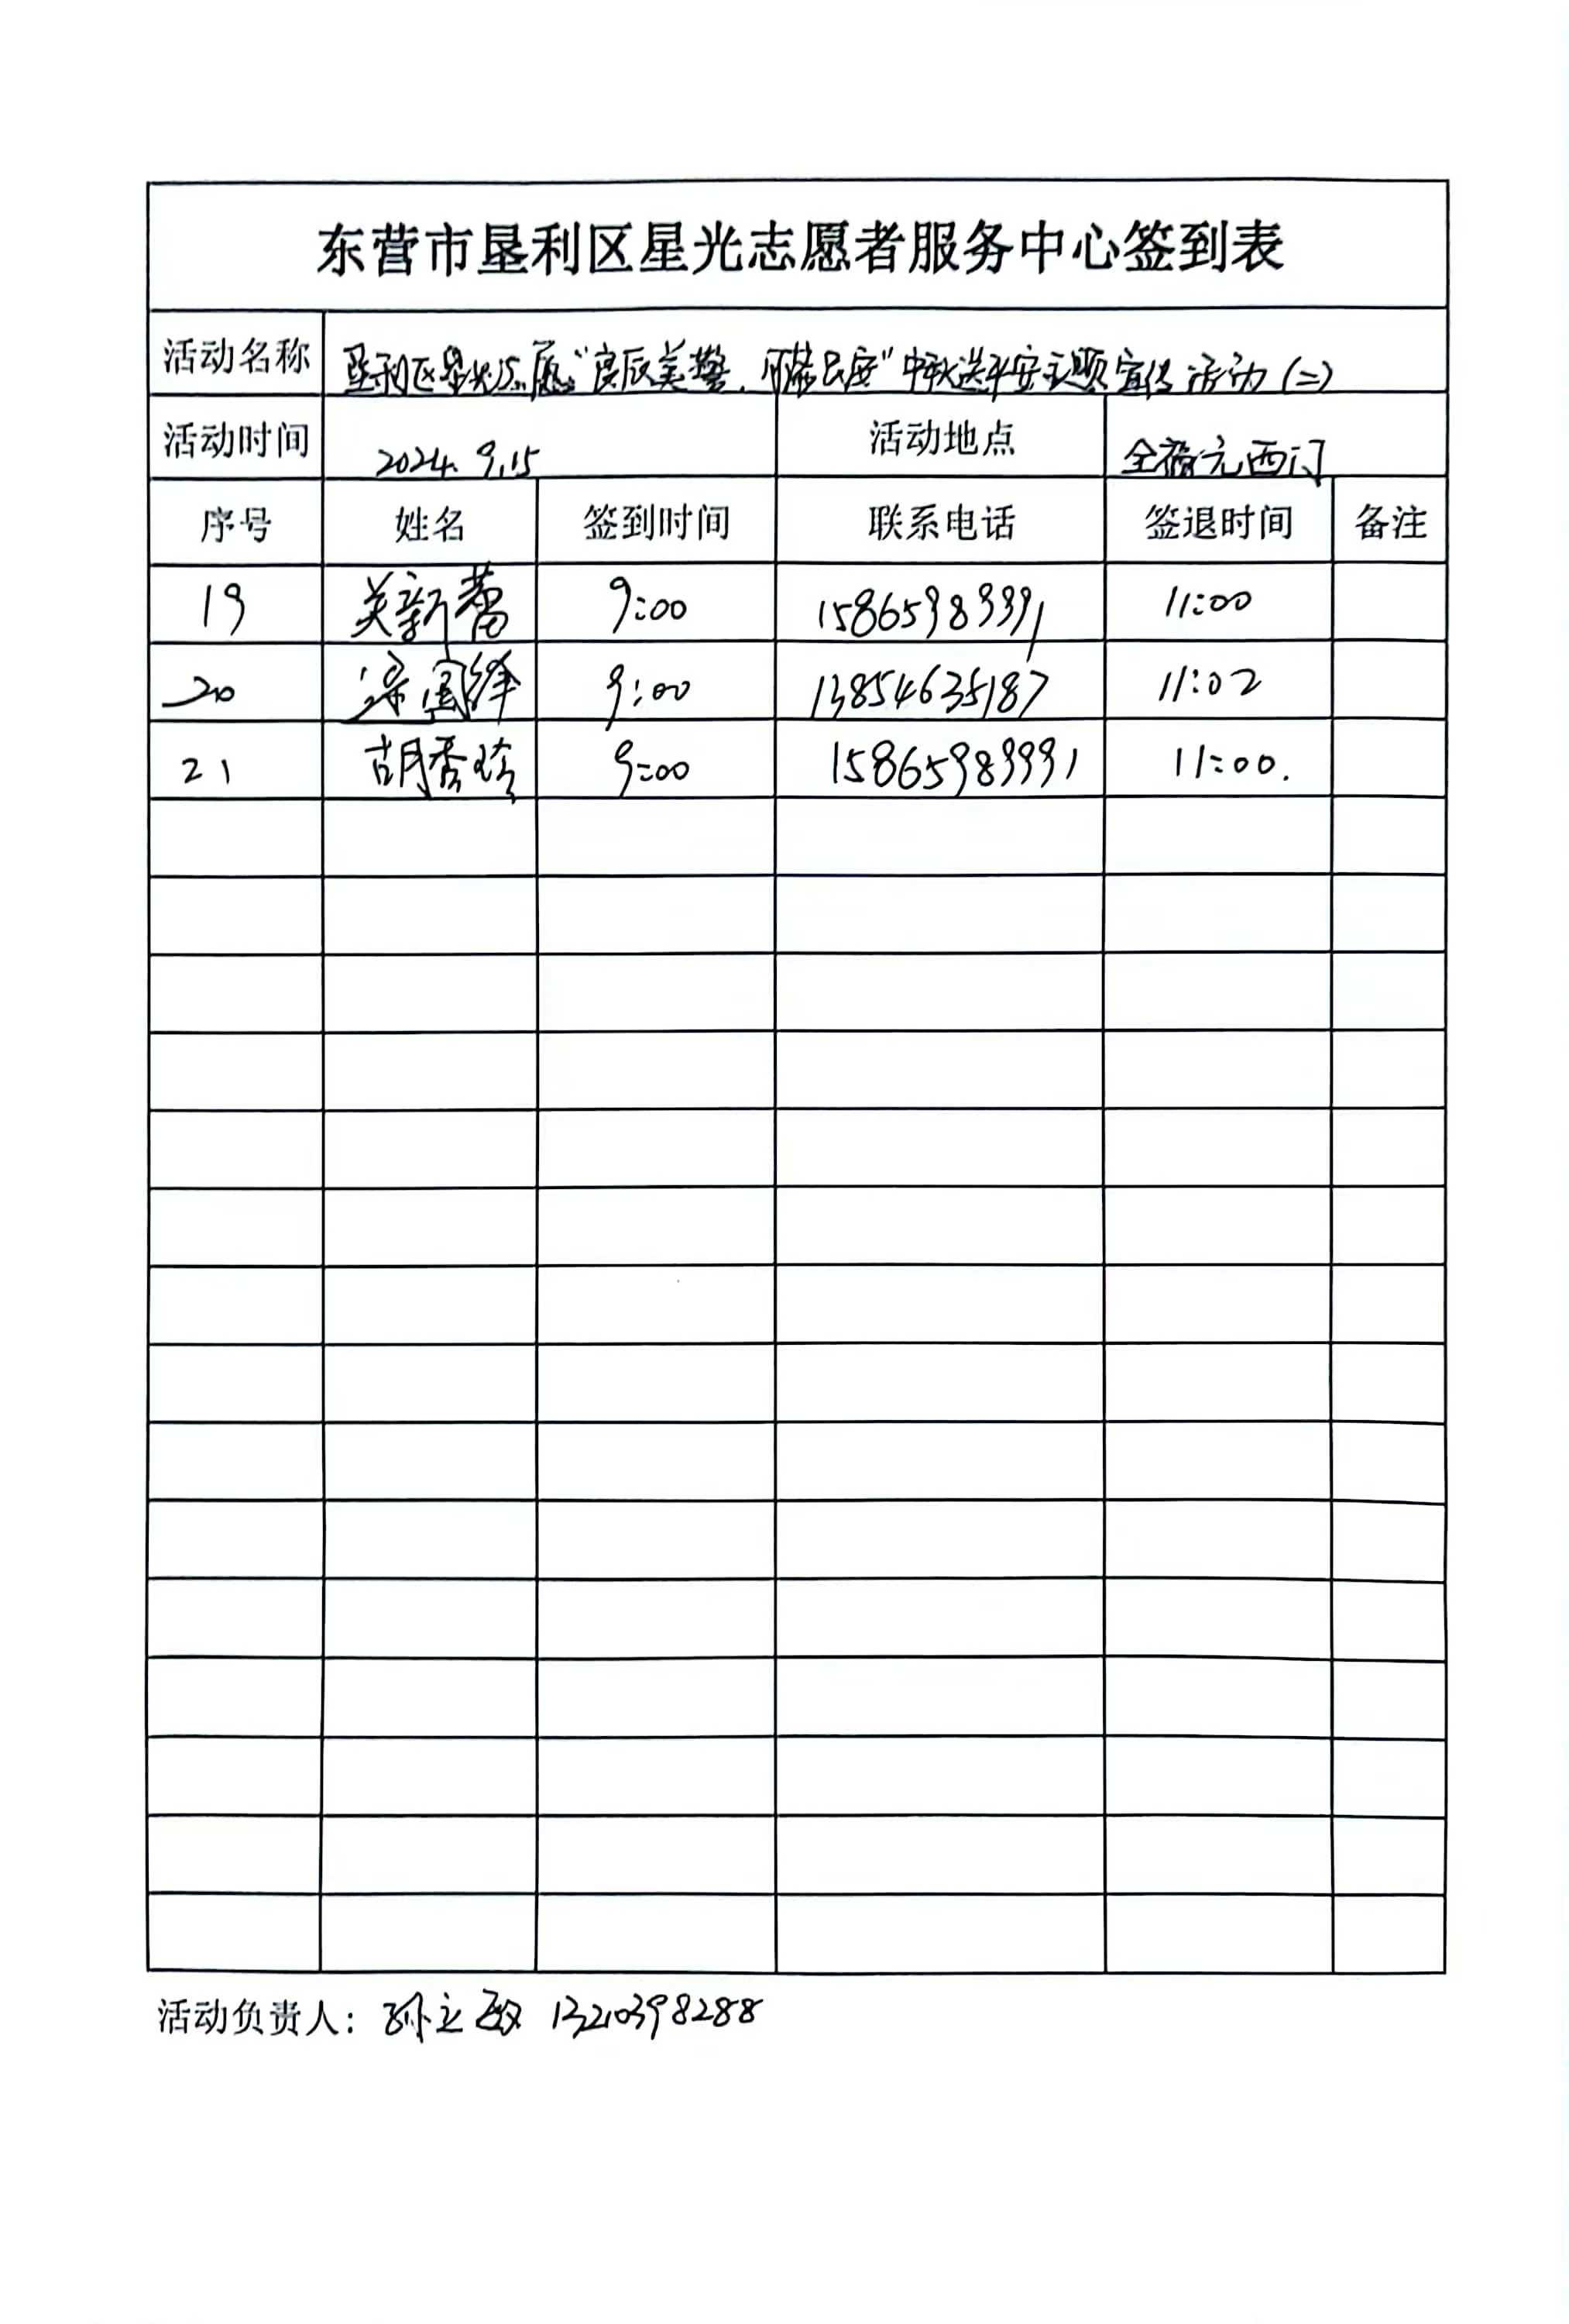 东营市垦利区星光志愿者服务中心签到表
活动名称 垦利区星光志愿"良辰美警, 民安"中秋送平安主题宣传活动(二)
活动时间 2024.9.15 活动地点 全福元西门
序号 姓名 签到时间 联系电话 签退时间 备注
19 新蕾 9:00 15865989991 11:00
20 国锋 9:00 13854635187 11:02
21 胡秀玲 9:00 15865989991 11:00.
活动负责人: 孙立敏 13210398288